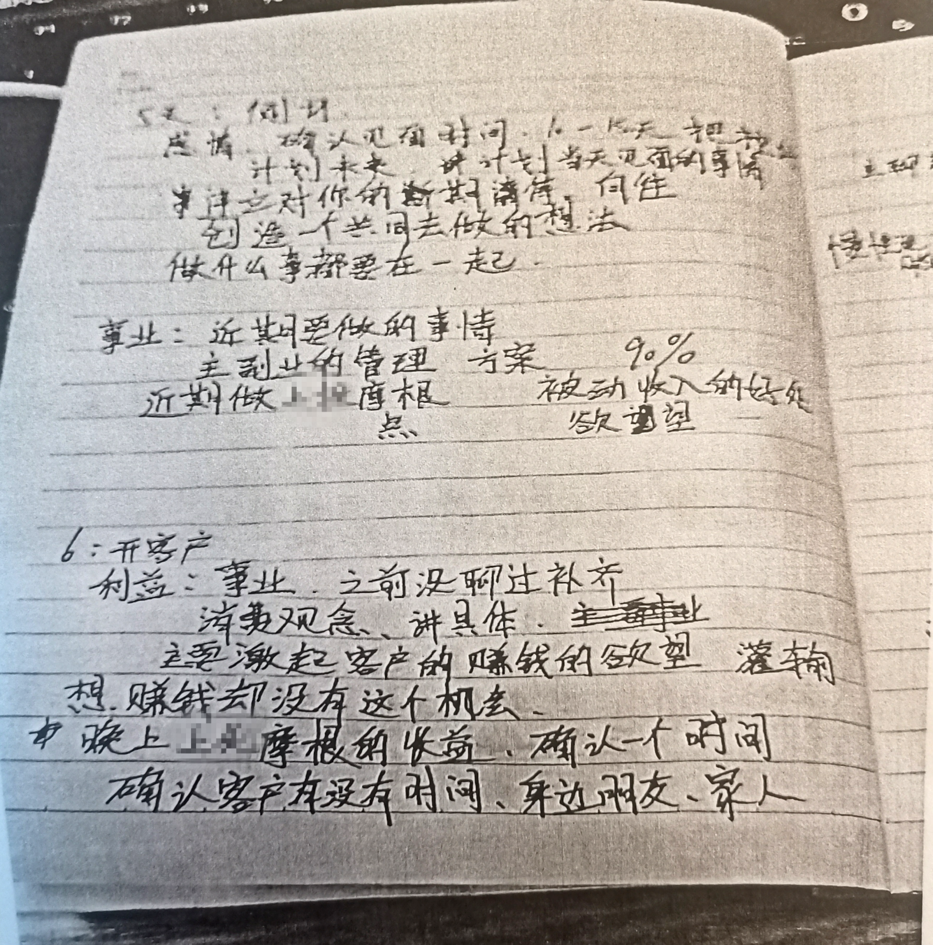 5天：
感情、确认见面时间、10-15天
计划未来、讲计划当天见面的事情
对你的期待、向往
创造一个共同去做的想法
做什么事都要在一起.
事业：近期要做的事情
主副业的管理 方案 90%
近期做 摩根 被动收入的好处
点 欲望
6：开客户
利益：事业、之前没聊过补齐
消费观念、讲具体.
主要激起客户的赚钱的欲望 灌输
想赚钱却没有这个机会、
晚上 摩根的收益、确认一个时间
确认客户有没有时间、身边朋友、家人